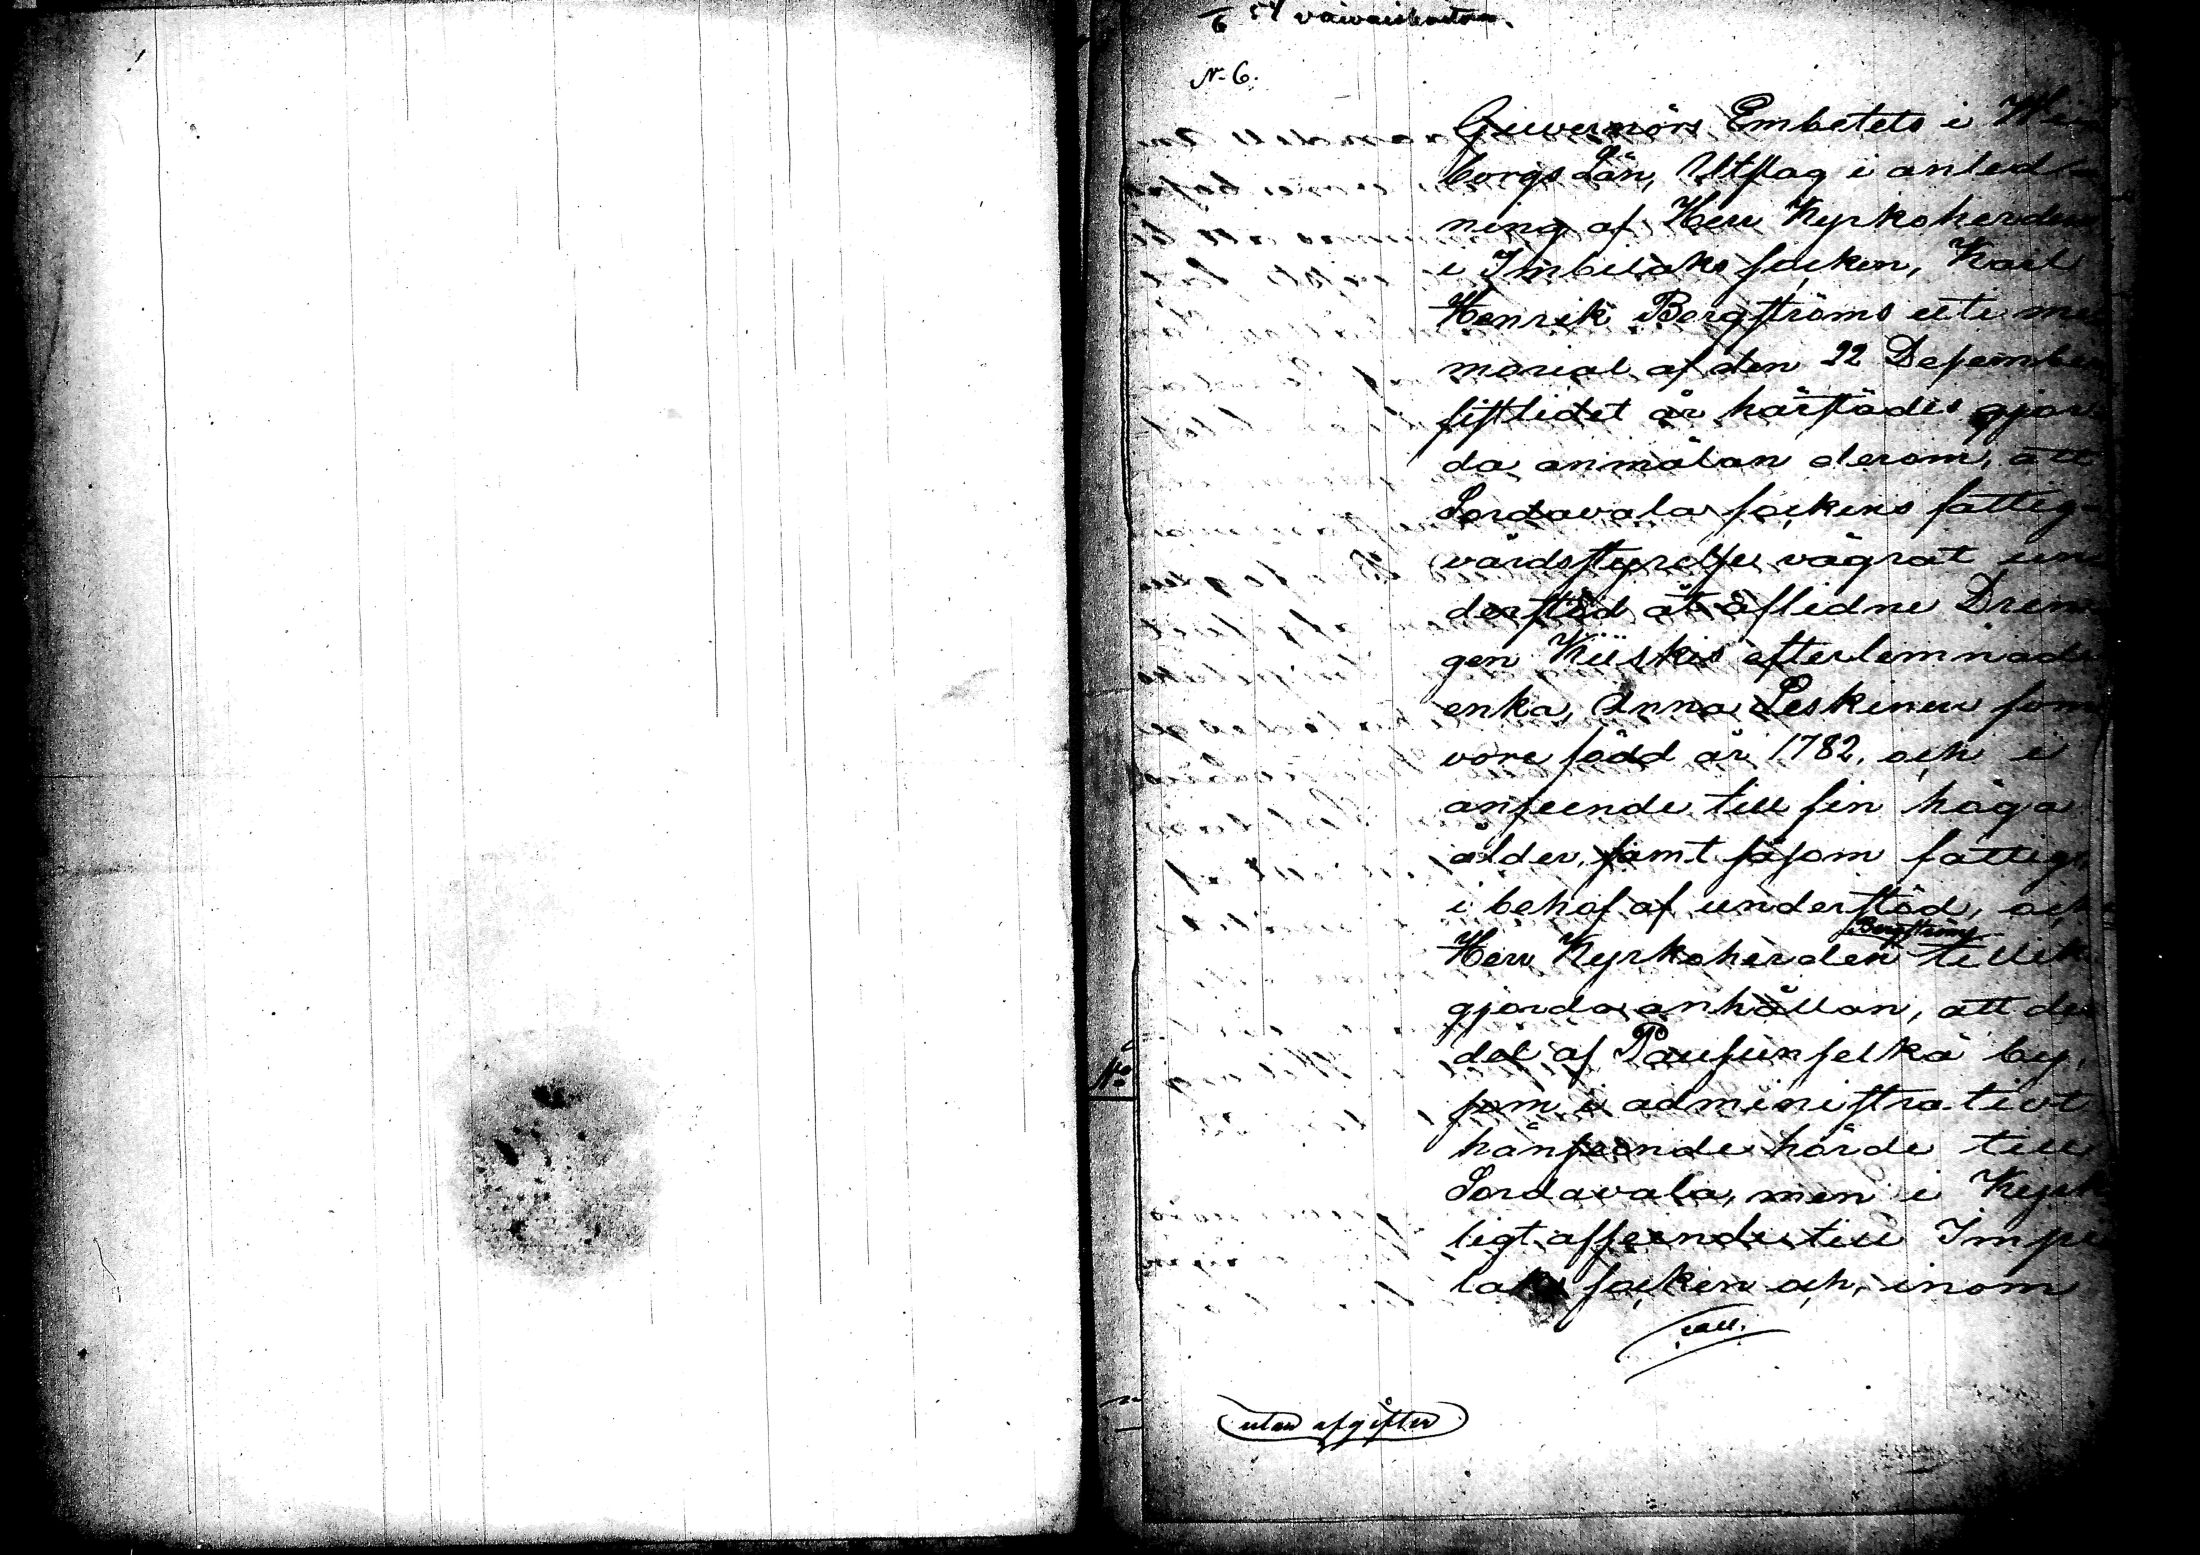 6
54 vaivaishoidon
N. 6.
Guvernörs Embetets i Wi
borgs Län, Utslag i anled-
ning af Herr Kyrkoherden
i Imbilaks socken, Karl
Henrik Bergströms uti me
morial af den 22 December
sistlidet år härstädes gjor
da anmälan derom, att
Sordavala sockens fattig-
vårdsstyrelse vägrat un
derstöd åt aflidne Dren
gen Kiiskis efterlemnade
enka, Anna Leskinen som
vore född år 1782, och i
anseende till sin höga
ålder, samt såsom fattig,
i behof af understöd, och
Bergström
Herr Kyrkoherden tillik
gjorda anhållan, att de
del af Pausunselkä by,
som i administrativt
hänseende hörde till
Sordavala, men i Kyrk
ligt afseende till Impi
laks socken och, inom
utan afgifter
No